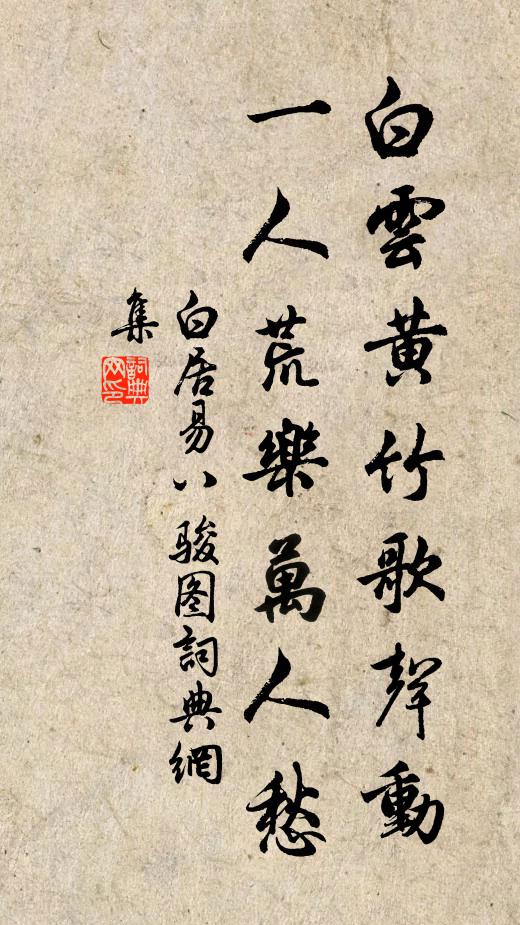 白雲黃竹歌聲動
一人荒樂萬人愁
白居易八駿图詞典網
集
詞典
网印